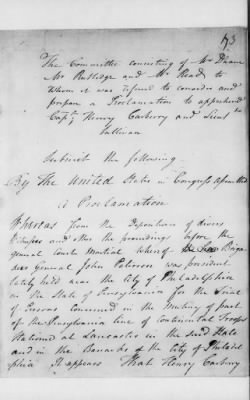 The Committee consisting of Mr Duane
Mr Rutledge and Mr Read to
whom it was refered to consider and
prepare a Proclamation to apprehend
Capt. Henry Carberry and Lieut
Sullivan
Submit the following
By The United States in Congress Assembled
A Proclamation
Whereas from the Depositions of divers
Witnesses and other the proceedings before the
General Court Martial Whereof Briga
dier General John Paterson was president
lately held near the City of Philadelphia
in the State of Pennsylvania for the Trial
of Persons Concerned in the Mutiny of part
of the Pennsylvania line of Continental Troops
Stationed at Lancaster in the said State
and in the Barracks of the City of Philadel
phia It appears That Henry Carberry